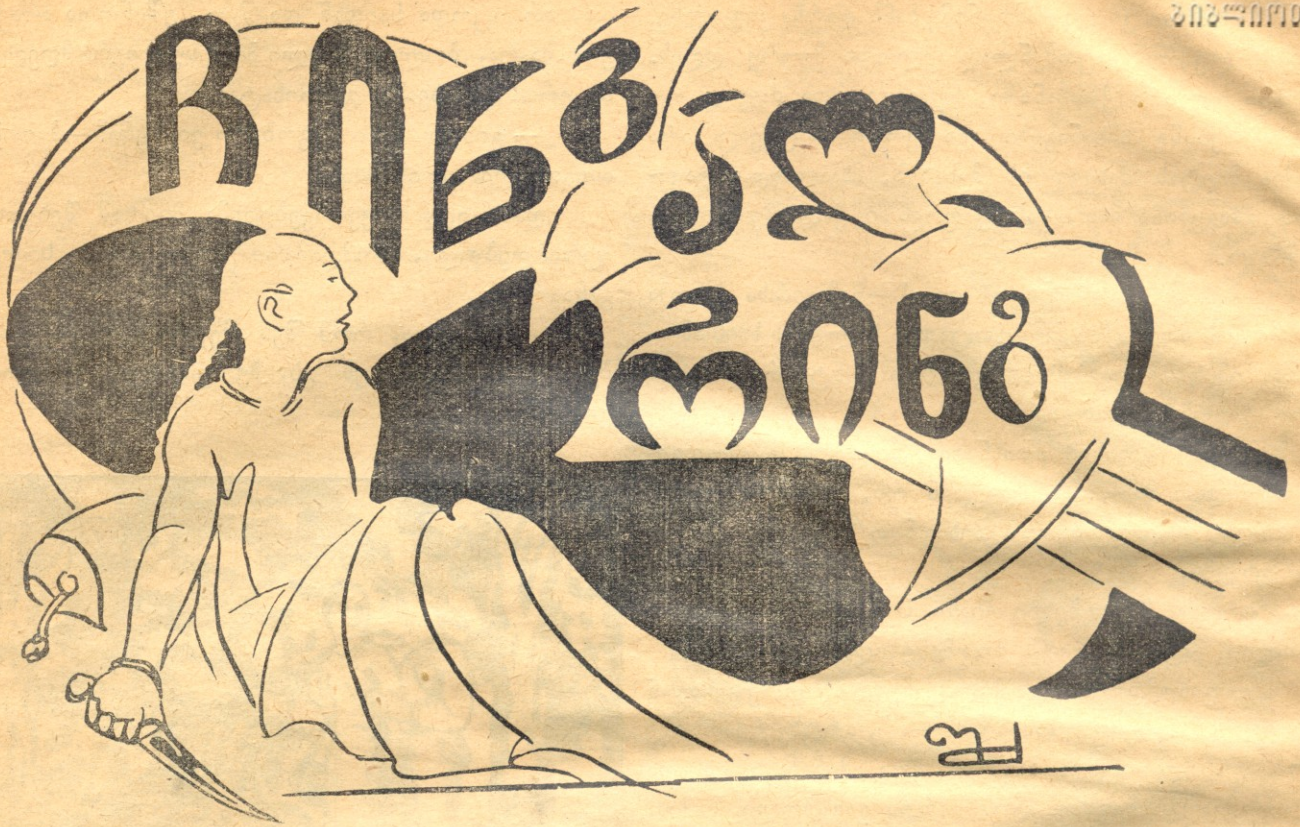 ჩინგალ
რინგ